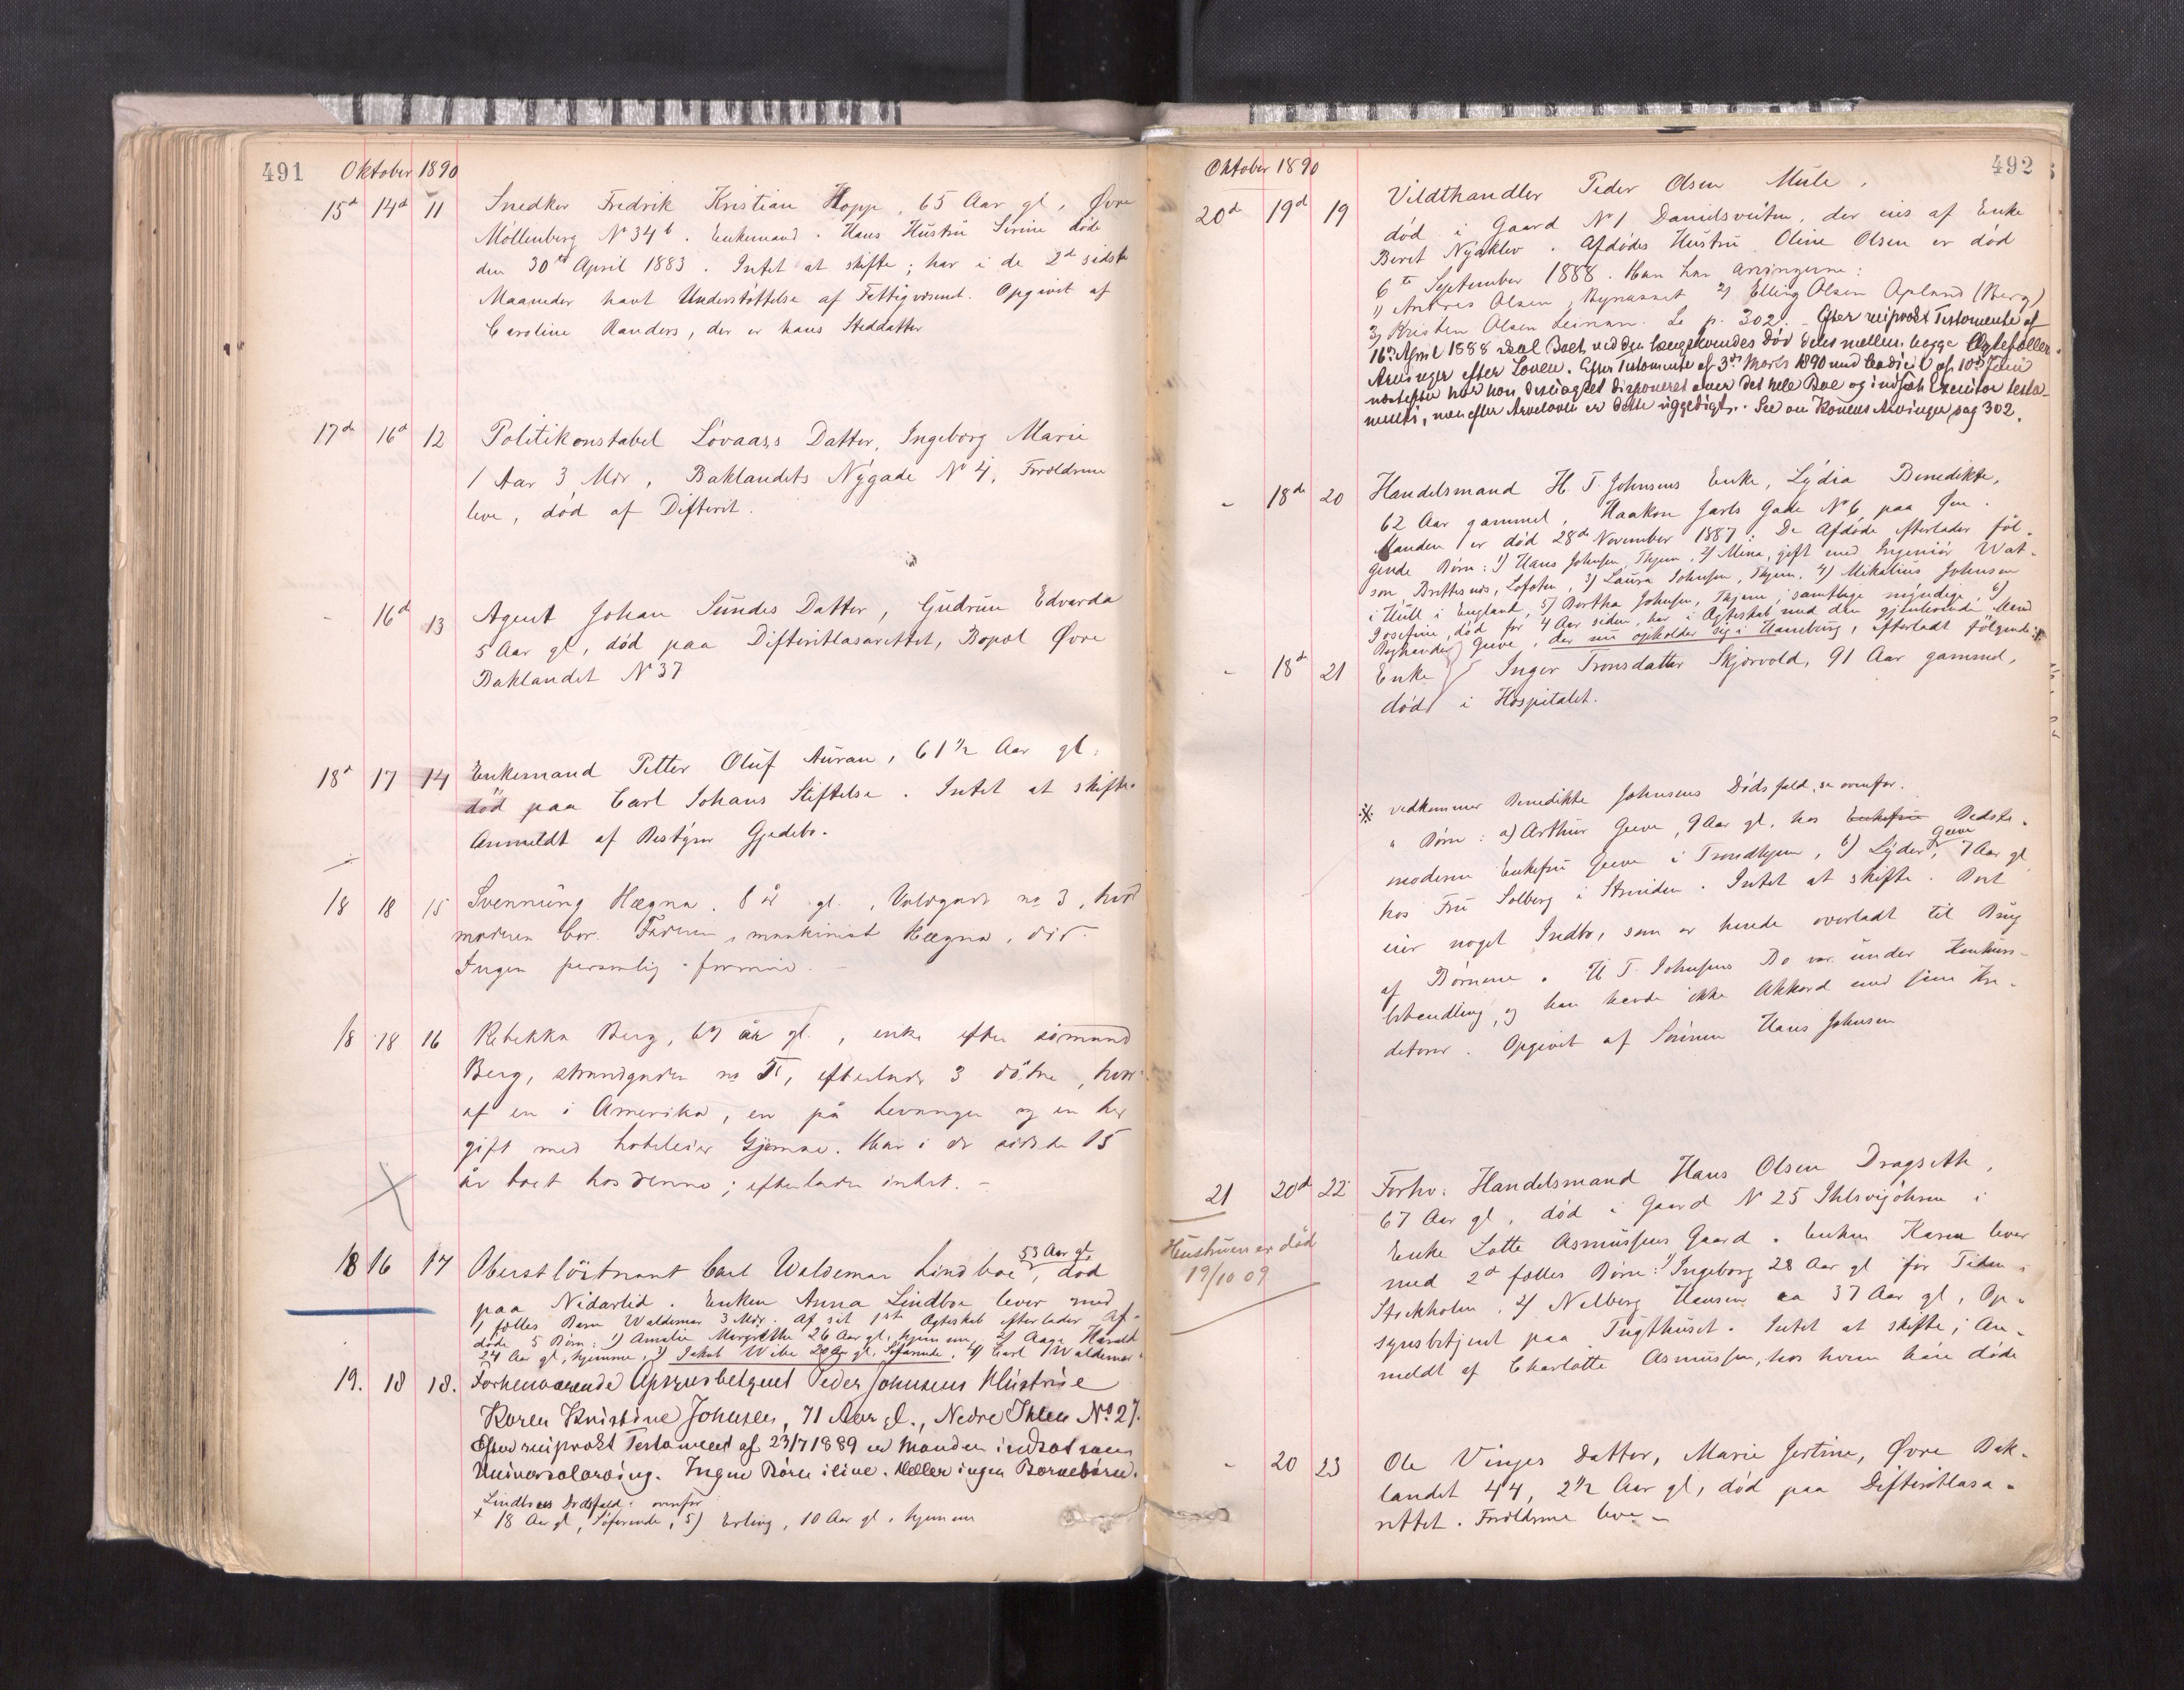 491 Oktober 1890
15d 14d 11 Snedker Fredrik Kristian Hopp, 65 Aar gl, Øvre
Möllenberg No 34b. Enkemand. Hans Hustru Serine döde
den 30te April 1883. Intet at skifte; har i de 2d sidste
Maaneder havt Understöttelse af Fattigvæsenet. Opgivet af
Caroline Randers, der er hans Steddatter
17de 16d 12 Politikonstabel Lövaas's Datter, Ingeborg Marie
1 Aar 3 Mdr, Baklandets Nygade No 4, Forældrene
leve, död af Difterit.
- 16d 13 Agent Johan Sundes Datter, Gudrun Edvarda
5 Aar gl, död paa Difteritlasarettet, Bopæl Øvre
Baklandet No 37
18d 17 14 Enkemand Petter Oluf Auran, 61 1/2 Aar gl,
död paa Carl Johans Stiftelse. Intet at skifte.
Anmeldt af Bestyrer Gjedebo.
18 18 15 Svennung Hægna. 8 år gl., Voldgade no 3, hvor
moderen bor. Faderen, maskinist Hægna, död.
Ingen personlig formue.
18 18 16 Rebekka Berg, 67 år gl., enke efter sömand
Berg, strandgaden no, efterlader 3 dötre, hvor-
af en i Amerika, en på Levanger og en her
gift med hoteleier Gjemse. Har i de sidste 15
år boet hos denne; efterlader intet. -
18 16 17 Oberstlöitnant Carl Waldemar Lindboe, 53 Aar gl, död
paa Nidarlid. Enken Anna Lindboe lever med
1 fælles Barn Waldemar 3 Mdr. Af sit 1ste Ægteskab efterlader Af-
döde 5 Börn: 1) Amalie Margrethe 26 Aar gl, hjemme, 2) Aage Harald
24 Aar gl, hjemme, 3) Jakob Wibe 20 Aar gl, Söfarende, 4) Carl Waldemar
19. 18 18. Forhenværende Opsynsbetjent Peder Johnsens Hustrue
Karen Kristine Johnsen, 71 Aar gl., Nedre Ihlen No 27.
Efter reciprokt Testament af 23/7 1889 er Manden indsat som
Universalarving. Ingen Börn ilive. Heller ingen Barnebörn.
Lindboes Dödsfald: ovenfor
+ 18 Aar gl, Söfarende, 5) Erling, 10 Aar gl, hjemme
Oktober 1890 492
20d 19d 19 Vildthandler Peder Olsen Mule,
död i Gaard No 1 Danielsveiten, der eies af Enke
Beret Nyaklev. Afdödes Hustru Oline Olsen er död
6te September 1888. Han har Arvingerne:
1) Antres Olsen, Bynesset 2) Elling Olsen Aplund (Berg)
3) Kristen Olsen Leinan. Se p. 302. - Efter reciprokt Testamente af
16de April 1888 skal Boet ved den længstlevendes död deles mellem begge Ægtefællers
Arvinger efter Loven. Efter Testamente af 3de Marts 1890 med Codicil af 10de Juni
næstefter har han desuagtet disponeret over det hele Boe og indsat Executor testa-
menti, men efter Arveloven er dette ugyldigt. See om Konens Arvinger pag 302.
- 18de 20 Handelsmand H. T. Johnsens Enke, Lydia Benedikte,
62 Aar gammel, Haakon Jarls Gade No 6 paa Øen.
Manden er död 28de November 1887. De Afdöde efterlader föl-
gende Börn: 1) Hans Johnsen, Thjem, 2) Mina, gift med Ingeniör Wat-
son, Brettesnæs, Lofoten, 3) Laura Johnsen, Thjem, 4) Mikalius Johnsen
i Hull i England, 5) Bertha Johnsen, Thjem, samtlige myndige, 6)
Josefine, död for 4 Aar siden, har i Ægteskab med den gjenlevende Mand
Boghandler Greve, der nu opholder sig i Hamburg, efterladt fölgende ⁒
- 18d 21 Enke Inger Tronsdatter Skjærvold, 91 Aar gammel,
död i Hospitalet.
⁒ vedkommer Benedikte Johnsens Dödsfald, se ovenfor.
" Börn: a) Arthur Greve, 9 Aar gl, hos Enkefru Bedste-
moderen Enkefru Greve i Trondhjem, b) Lyder Greve, 7 Aar gl
hos Fru Solberg i Strinden. Intet at skifte. Boet
eier noget Indbo, som er hende overladt til Brug
af Börnene. H T. Johnsens Bo var under Konkurs-
behandling, og han havde ikke Akkord med sine Kre-
ditorer. Opgivet af Sönnen Hans Johnsen
21 20d 22 Forhv. Handelsmand Hans Olsen Dragseth,
67 Aar gl, död i Gaard No 25 Ihlsvigören i
Enke Lotte Asmussens Gaard. Enken Karen lever
med 2d fælles Börn: 1) Ingeborg 28 Aar gl for Tiden i
Stockholm, 2) Nelberg Hansen ca 37 Aar gl, Op-
synsbetjent paa Tugthuset. Intet at skifte; An-
meldt af Charlotte Asmussen, hos hvem han döde
Hustruen er död
19/10 09
- 20 23 Ole Vinjes Datter, Marie Jertine, Øvre Bak-
landet 44, 2 1/2 Aar gl, död paa Difteritlasa-
rettet. Forældrene leve -